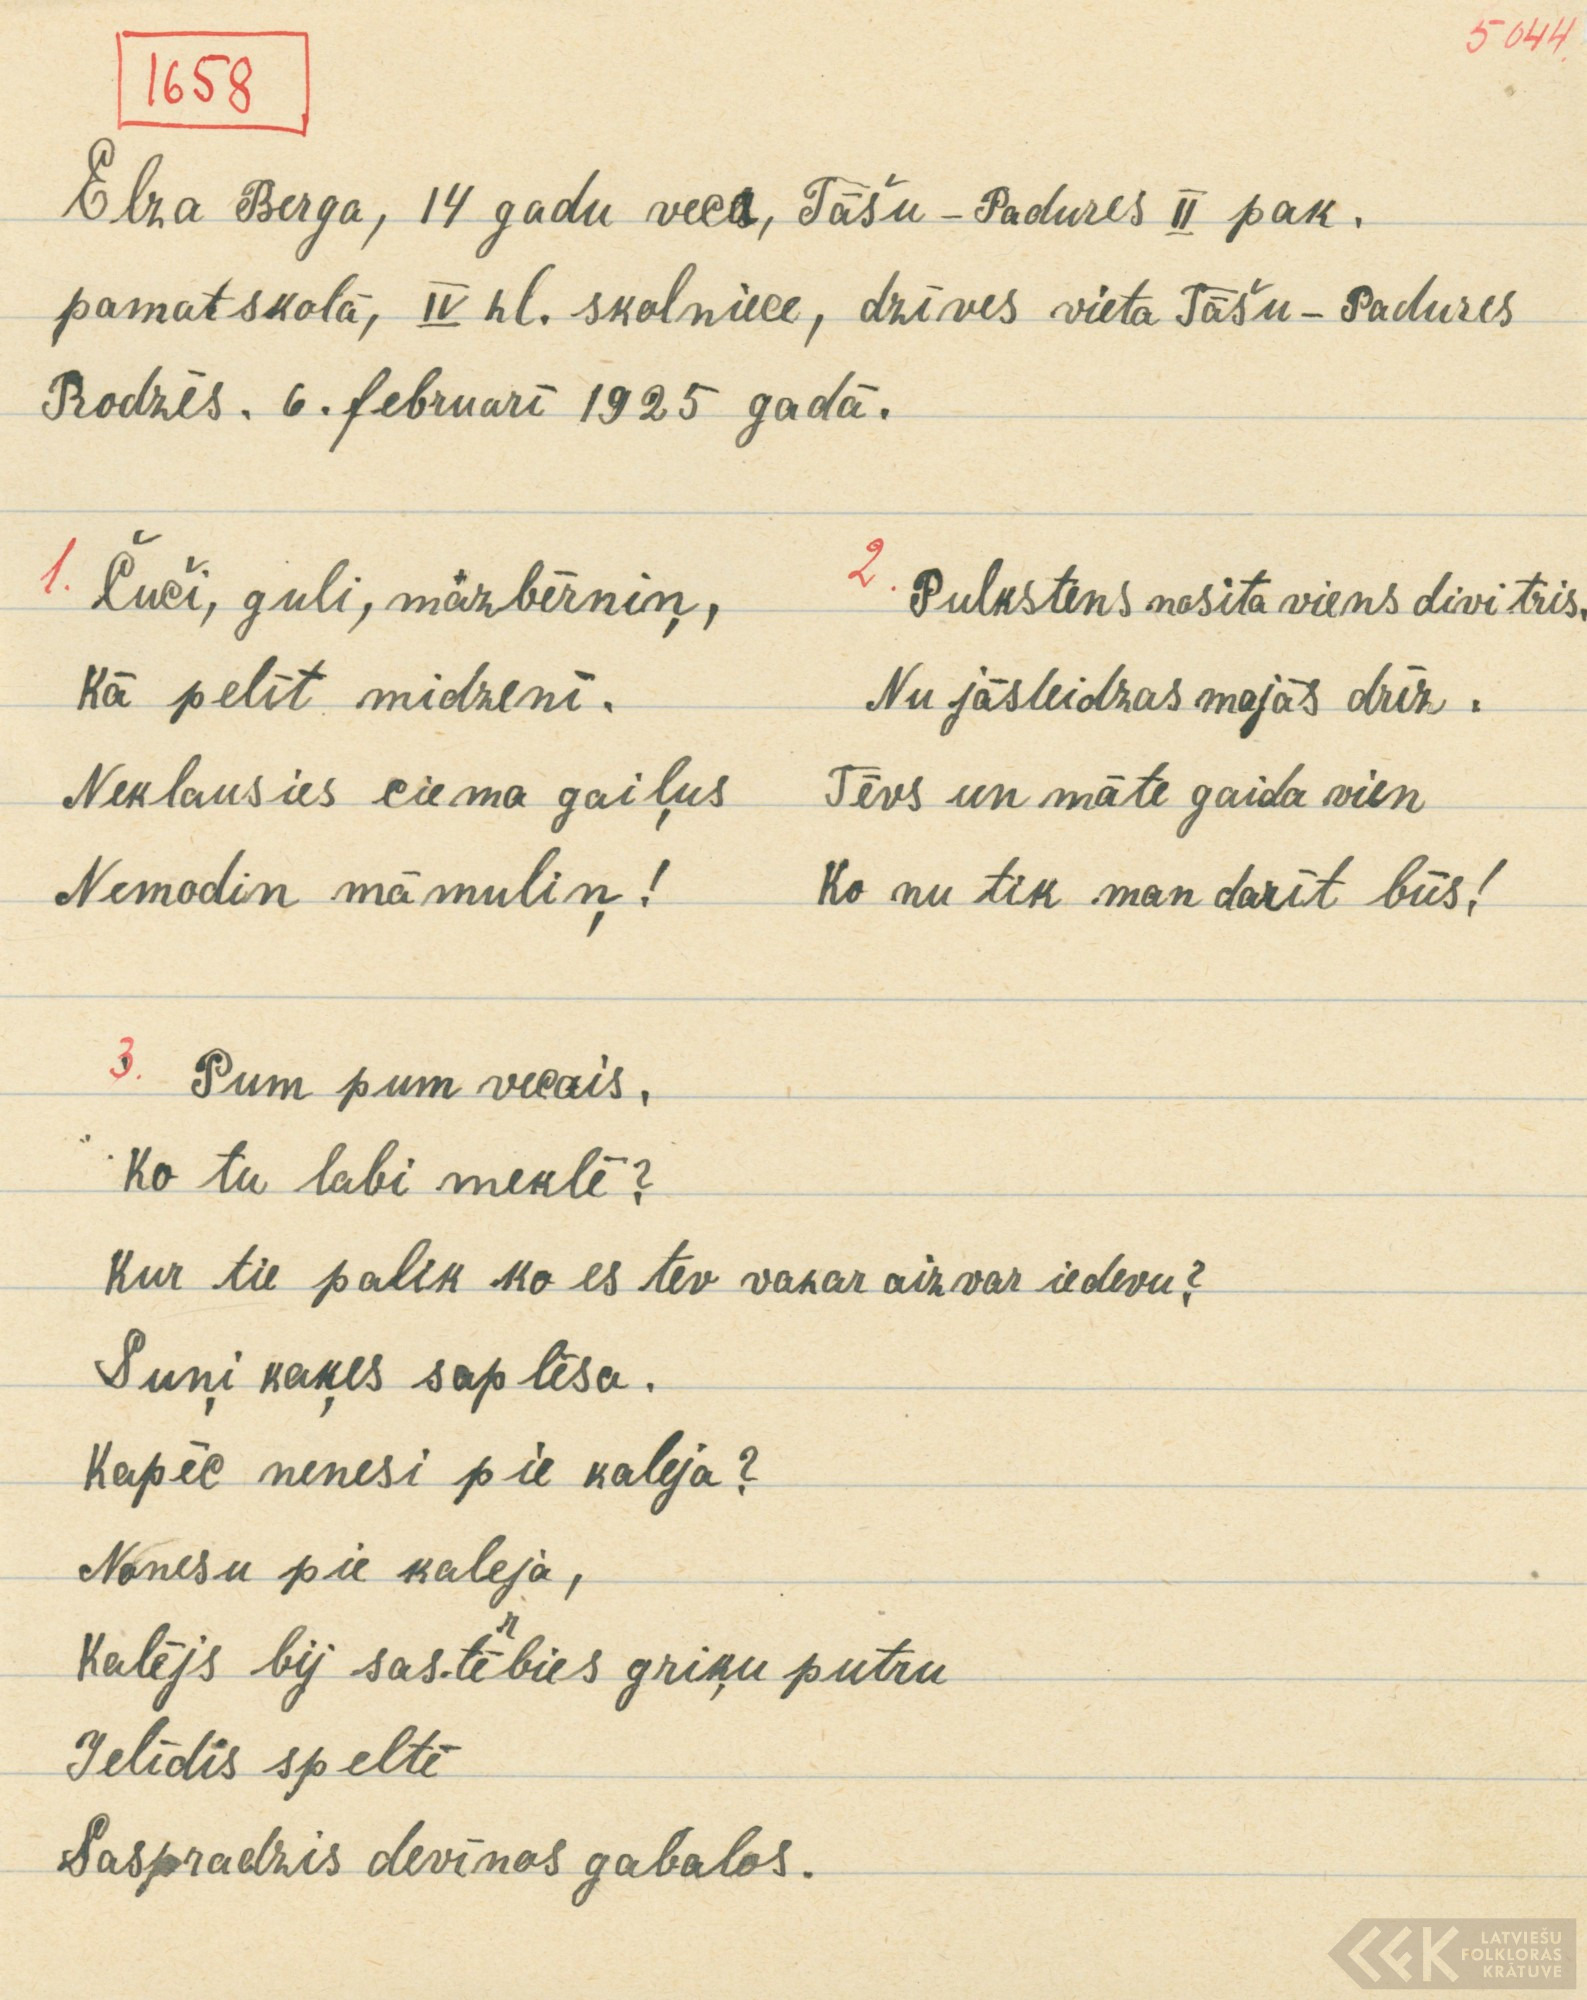 1658
5044.
Elza Berga, 14 gadu veca, Tāšu-Padures II pak.
pamatskolā, IV kl. skolniece, dzīves vieta Tāšu-Padures
Rodzēs. 6. februarī 1925 gadā.
1. Čuči, guli, māzbērniņ,
Kā pelīt midzenī.
Neklausies ciema gaiļus
Nemodin māmuliņ!
2. Pulkstens nosita viens divi trīs.
Nu jāsteidzas mājās drīz.
Tēvs un māte gaida vien
Ko nu tik man darīt būs!
3. Pum pum vecais,
Ko tu labi meklē?
Kur tie palik ko es tev vakar aizvar iedevu?
Suņi kaķes saplēsa.
Kapēc nenesi pie kaleja?
Nonesu pie kaleja,
Kalējs bij sastērbies griķu putru
Ielīdis speltē
Saspradzis devīnos gabalos.
LATVIEŠU
FOLKLORAS
KRĀTUVE